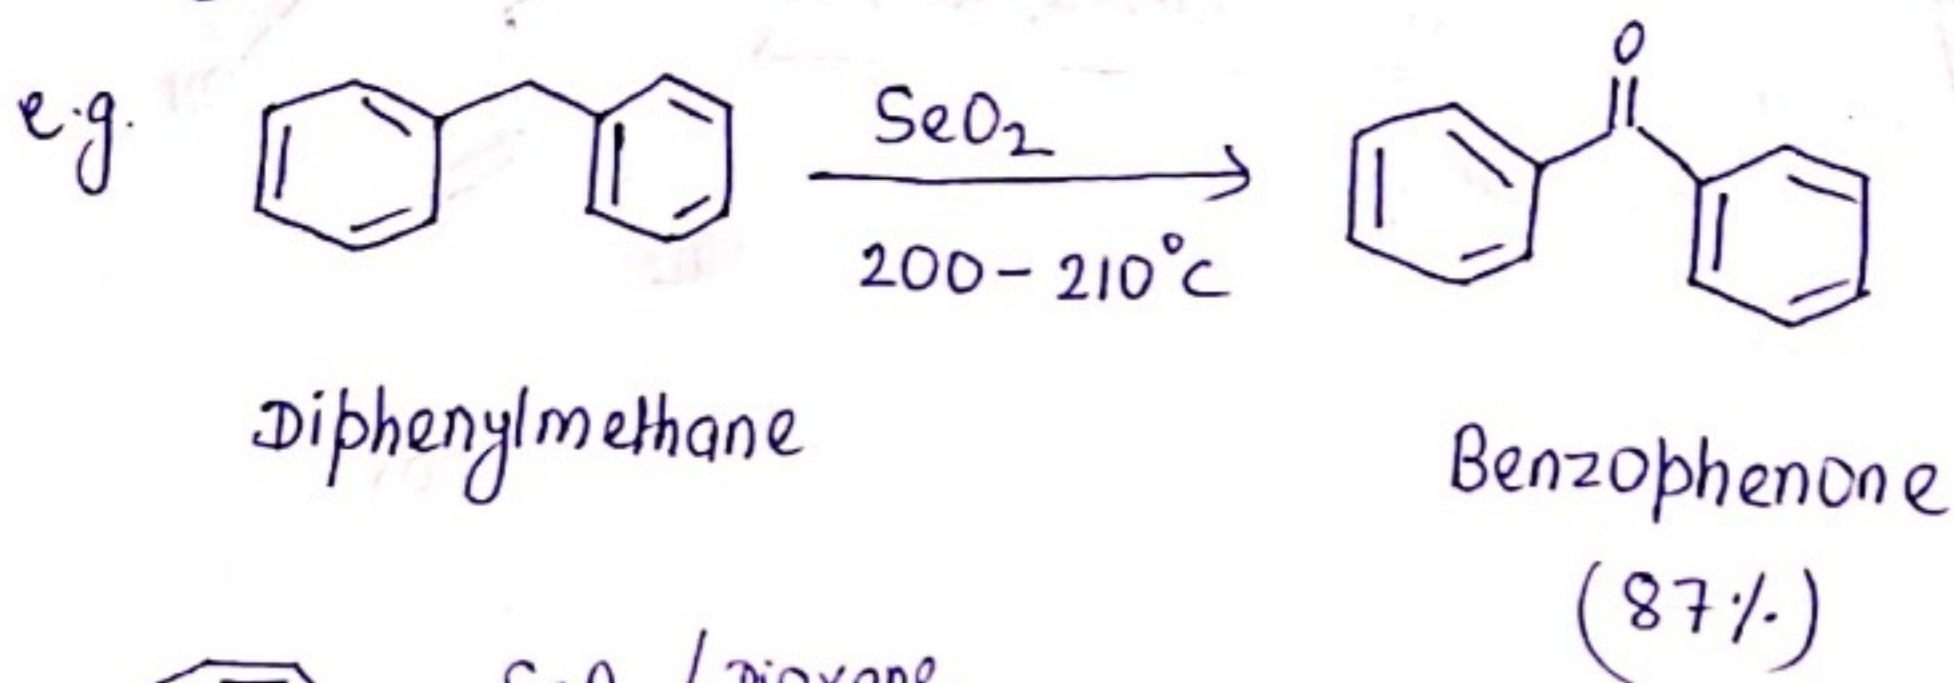 e.g.
O
SeO₂
200-210°C
Diphenylmethane
Benzophenone
(87%)